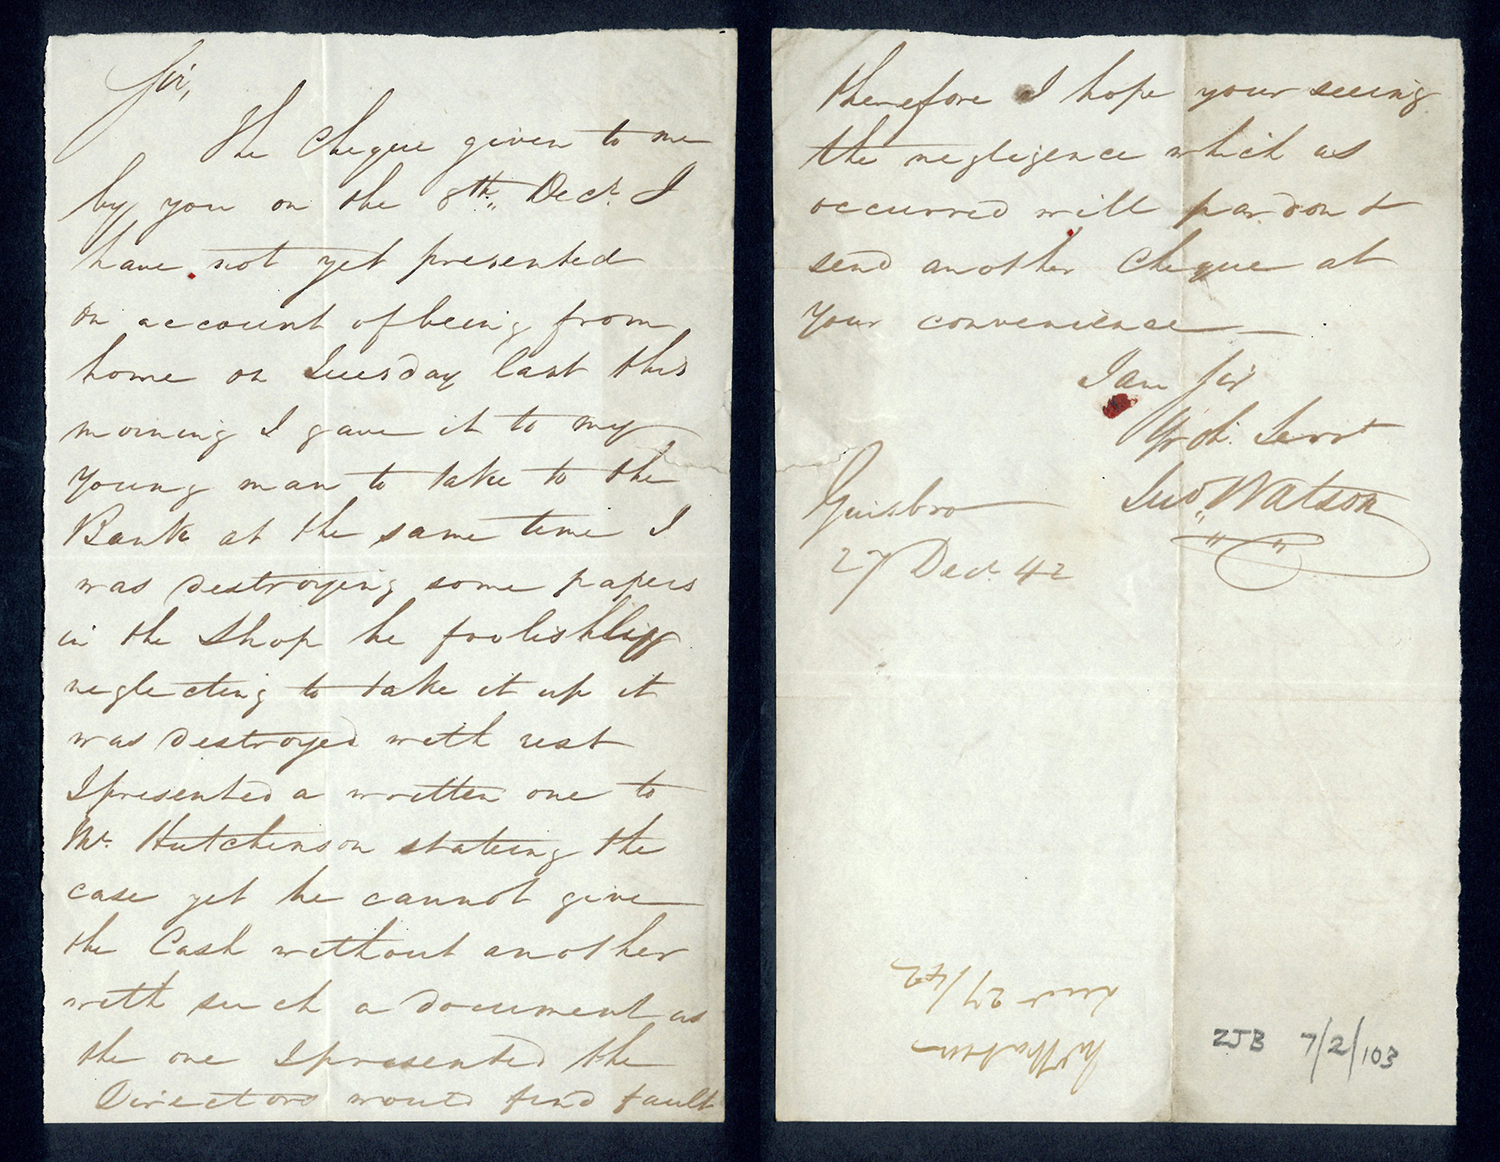 Sir,
The Cheque given to me
by you on the 8th Decr. I
have not yet presented
on account of being from
home on Tuesday last this
morning I gave it to my
young man to take to the
Bank at the same time I
was destroying some papers
in the Shop he foolishly
neglecting to take it up it
was destroyed with rest
I presented a written one to
Mr. Hutchinson stateing the
case yet he cannot give
the Cash without another
with such a document as
the one I presented the
Directors would find fault
therefore I hope your seeing
the negligence which as
occurred will pardon &
send another Cheque at
your convenience
I am Sir
Yr ob. Servt
Watson
Guisbro
27 Decr. 42
27/42
ZJB 7/2/103